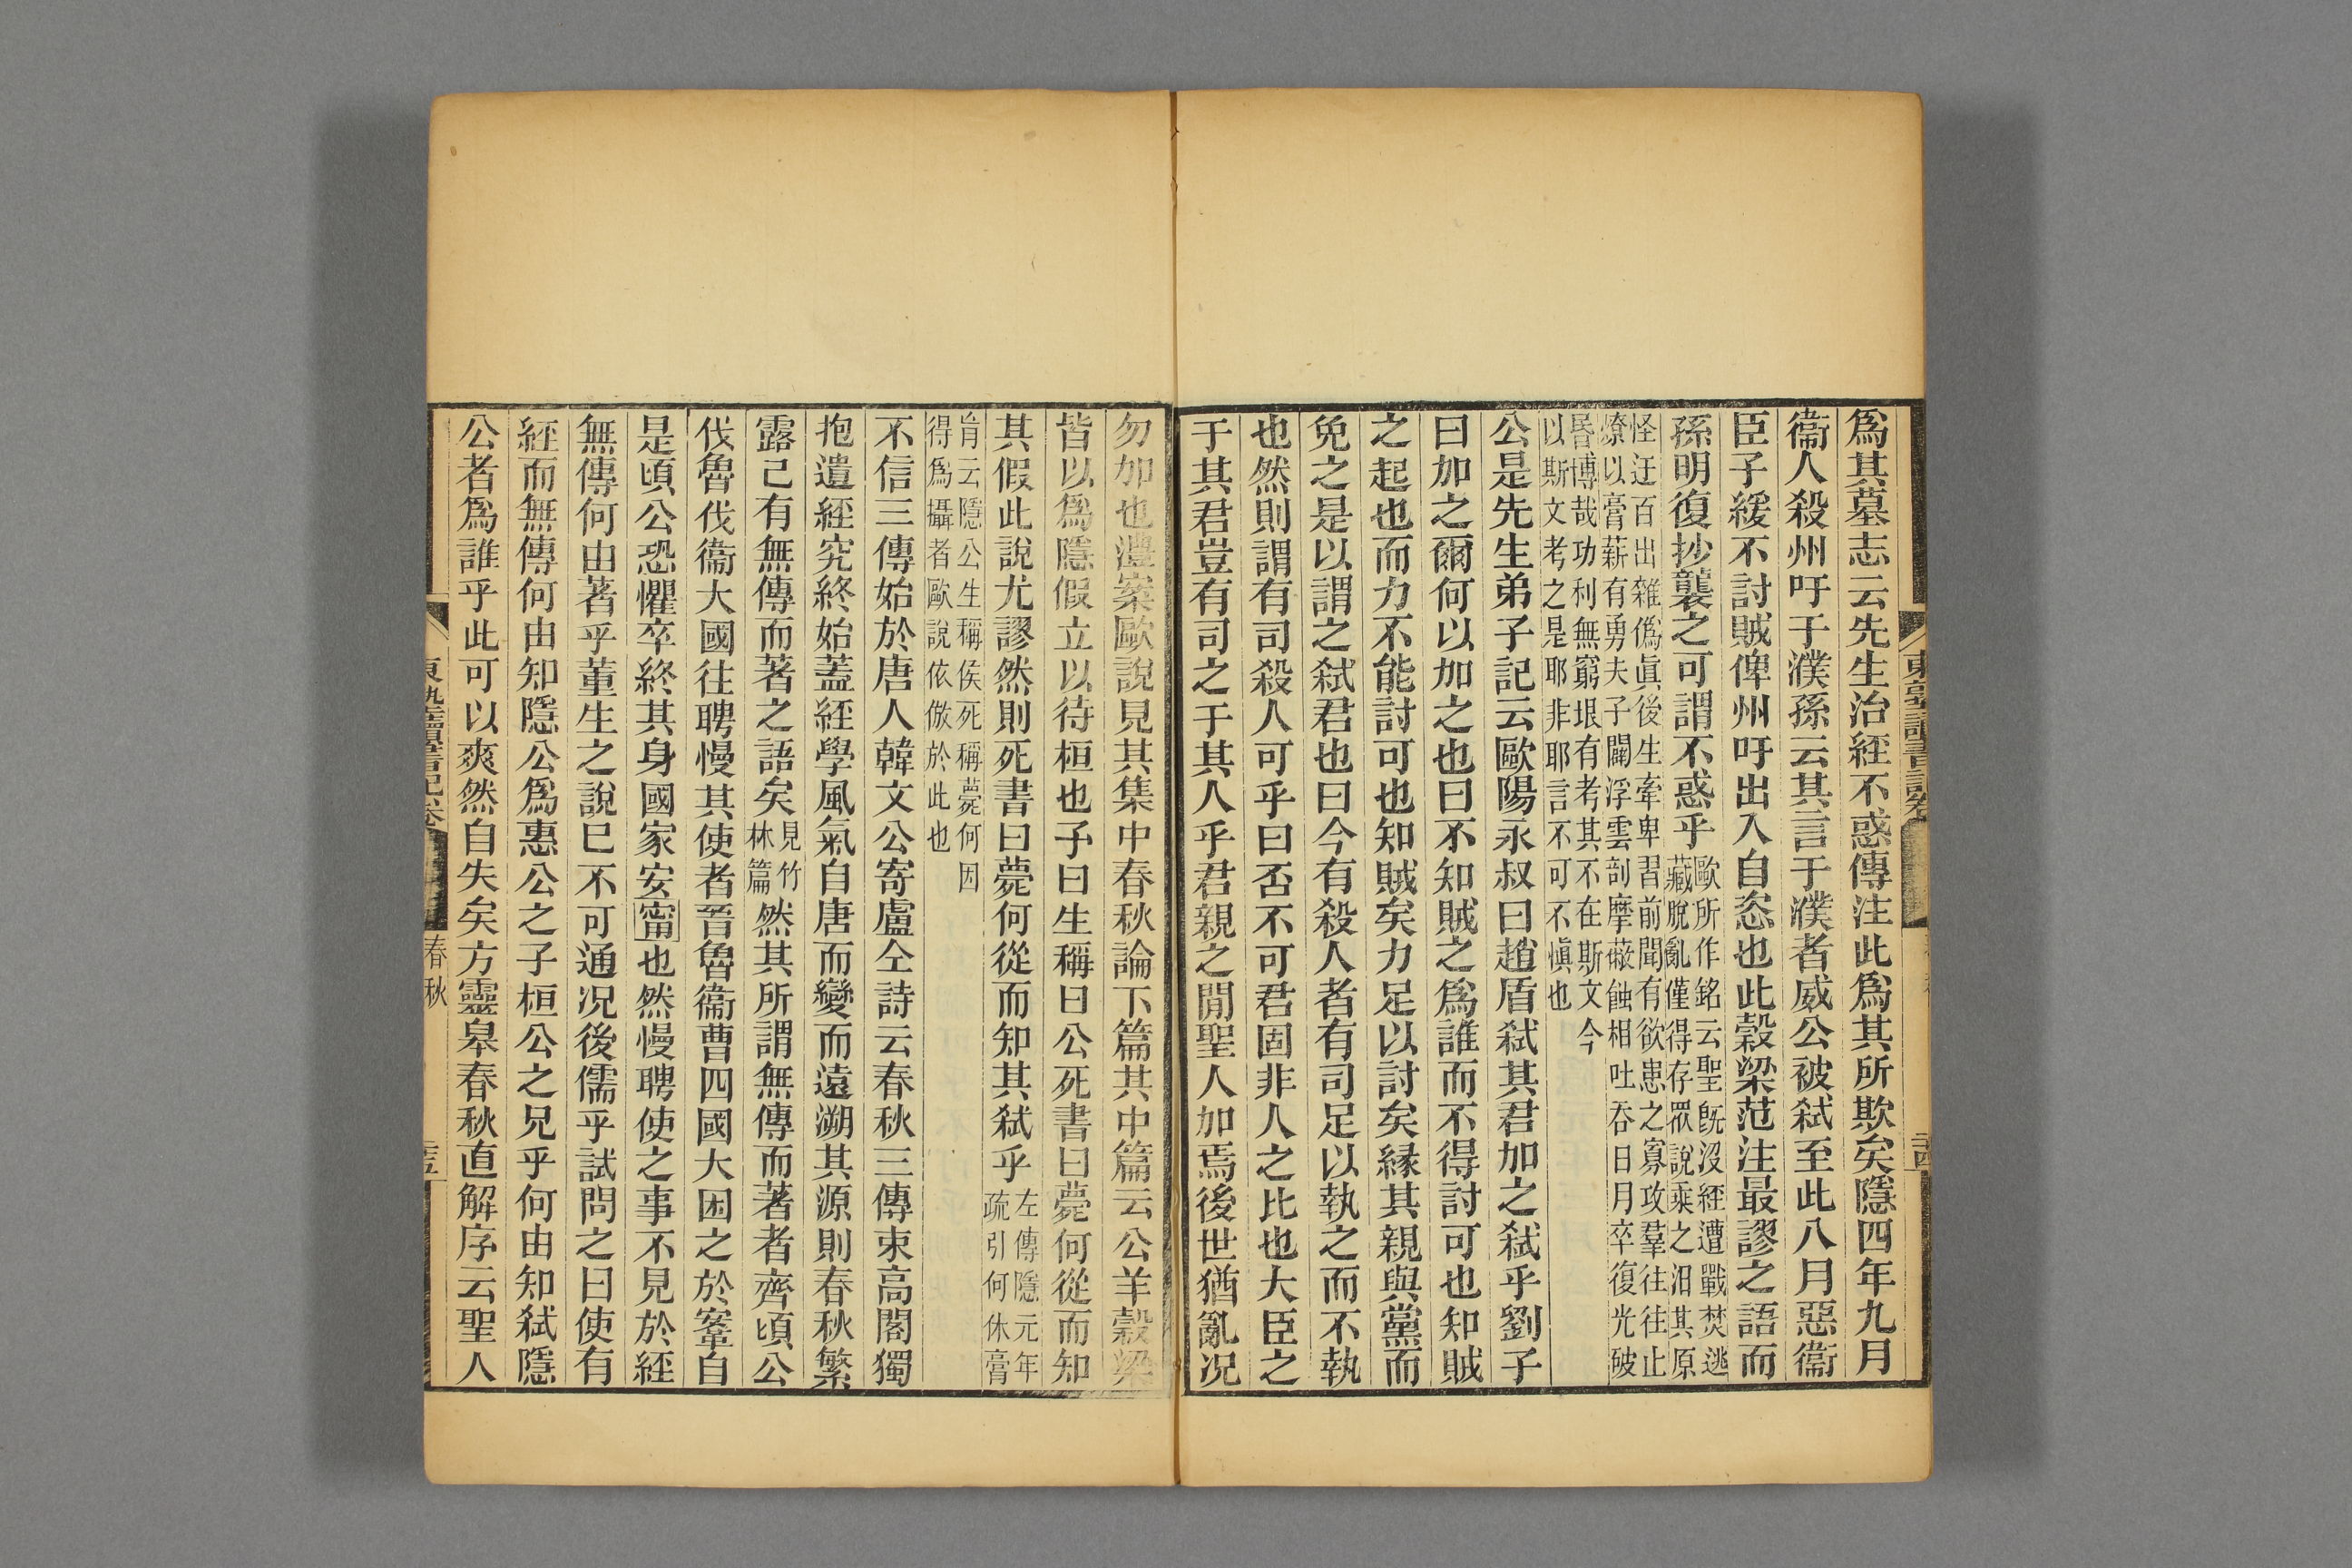 爲其墓志云先生治經不惑傳注此爲其所欺矣隱四年九月
衞人殺州吁于濮孫云其言于濮者威公被弑至此八月惡衞
臣子緩不討賊俾州吁出入自恣也此穀梁范注最謬之語而
孫明復抄襲之可謂不惑乎
歐所作銘云聖旣沒經遭戰焚逃
藏脫亂僅得存眾說乘之汨其原
怪迂百出雜僞眞後生牽卑習前聞有欲患之寡攻羣往往止
燎以膏薪有勇夫子闢浮雲刮摩蔽蝕相吐呑日月卒復光破
昬博哉功利無窮垠有考其不在斯文今
以斯文考之是耶非耶言不可不愼也
公是先生弟子記云歐陽永叔曰趙盾弑其君加之弑乎劉子
曰加之爾何以加之也曰不知賊之爲誰而不得討可也知賊
之起也而力不能討可也知賊矣力足以討矣緣其親與黨而
免之是以謂之弑君也曰今有殺人者有司足以執之而不執
也然則謂有司殺人可乎曰否不可君固非人之比也大臣之
于其君豈有司之于其人乎君親之閒聖人加焉後世猶亂況
勿加也灃案歐說見其集中春秋論下篇其中篇云公羊穀梁
皆以爲隱假立以待桓也子曰生稱曰公死書曰薨何從而知
其假此說尤謬然則死書曰薨何從而知其弑乎
左傳隱元年
疏引何休膏
肓云隱公生稱侯死稱薨何因
得爲攝者歐說依倣於此也
不信三傳始於唐人韓文公寄盧仝詩云春秋三傳束高閣獨
抱遺經究終始蓋經學風氣自唐而變而遠溯其源則春秋繁
露已有無傳而著之語矣
見竹
林篇
然其所謂無傳而著者齊頃公
伐魯伐衞大國往聘慢其使者晉魯衞曹四國大困之於鞌自
是頃公恐懼卒終其身國家安甯也然慢聘使之事不見於經
無傳何由著乎董生之說已不可通況後儒乎試問之曰使有
經而無傳何由知隱公爲惠公之子桓公之兄乎何由知弑隱
公者爲誰乎此可以爽然自失矣方靈皋春秋直解序云聖人
東塾讀書記卷
春秋